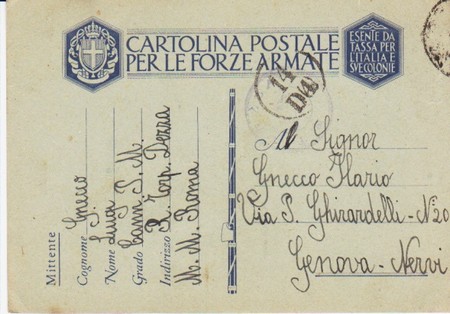 CARTOLINA POSTALE
PER LE FORZE ARMATE
ESENTE DA
TASSA PER
L'ITALIA E
SVE COLONIE
14
Al Signor
Gnecco Ilario
Via P. Ghirardelli - N° 20
Genova - Nervi
Mittente
Cognome Gnecco
Nome Luigi
Grado Cann. P. M.
Indirizzo R. Torp. Dezza
M. M. Roma